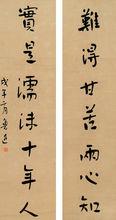 難得甘苦兩心知
實是濡沫十年人
戊午二月魯迅